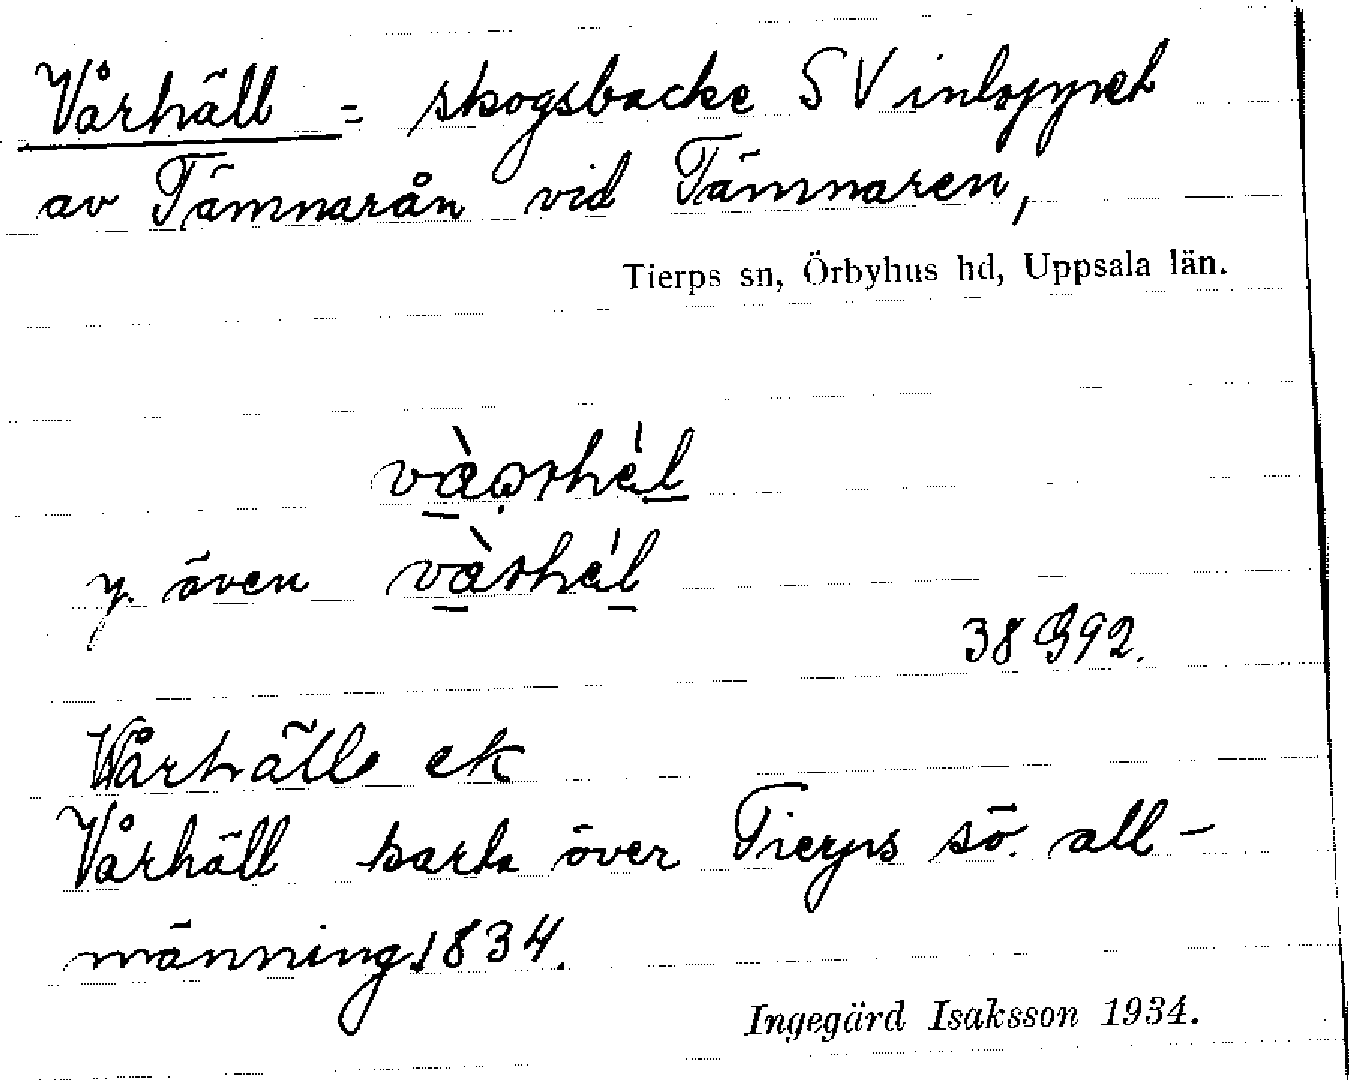 Vårhäll = skogsbacke SV inloppet
av Tämnarån vid Tämnaren,
Tierps sn, Örbyhus hd, Uppsala län.
y. även
38 G92.
Vårhälls ek
Vårhäll karta över Tierps sö. all-
männing 1834.
Ingegärd Isaksson 1934.